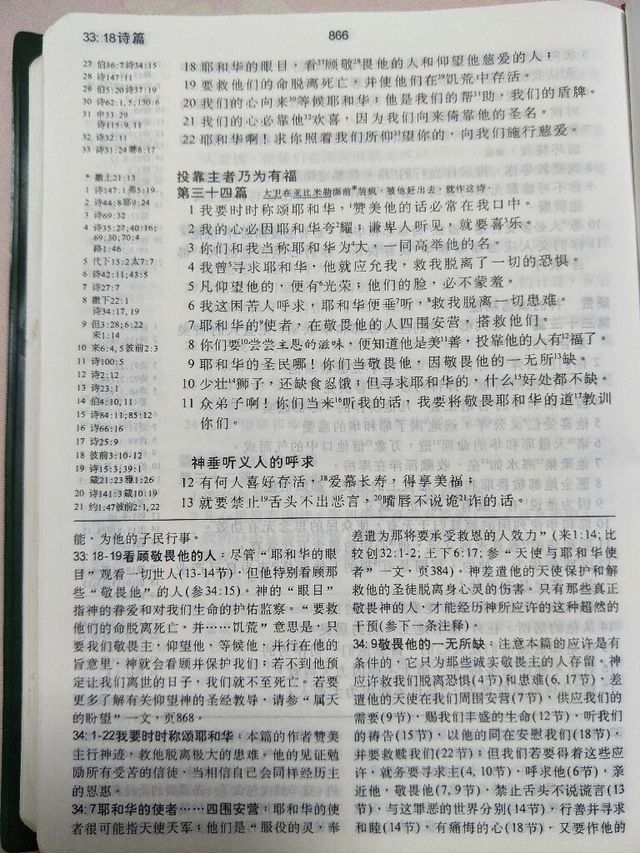 33:18诗篇
866
27 伯36:7诗34:15
28 诗147:11
29 伯5:20诗37:19
30 诗62:1,5;130:6
31 申33:29
诗115:9,11
32 诗32:11
33 诗31:24弥8:17
18 耶和华的眼目，看27顾敬28畏他的人和仰望他慈爱的人；
19 要救他们的命脱离死亡，并使他们在29饥荒中存活。
20 我们的心向来30等候耶和华；他是我们的帮31助，我们的盾牌。
21 我们的心必靠他32欢喜，因为我们向来倚靠他的圣名。
22 耶和华啊！求你照着我们所仰33望你的，向我们施行慈爱。
*撒上21:13
1 诗147:1弗5:19
2 诗44:8耶9:24
3 诗69:32
4 诗35:27;40:16;
69:30;70:4
路1:46
5 代下15:2太7:7
6 诗42:11;43:5
7 诗27:7
8 撒下22:1
诗34:17,19
9 但3:28;6:22
来1:14
10 来6:4,5彼前2:3
11 诗100:5
12 诗2:12
13 诗23:1
14 伯4:10,11
15 诗84:11;85:12
16 诗66:16
17 诗25:9
18 彼前3:10-12
19 诗15:3;39:1
箴21:23雅1:26
20 诗141:3箴10:19
21 约1:47彼前2:1,22
投靠主者乃为有福
第三十四篇 大卫在亚比米勒面前*装疯，被他赶出去，就作这诗。
1 我要时时称颂耶和华，1赞美他的话必常在我口中。
2 我的心必因耶和华夸2耀；谦卑人听见，就要喜3乐。
3 你们和我当称耶和华为4大，一同高举他的名。
4 我曾5寻求耶和华，他就应允我，救我脱离了一切的恐惧。
5 凡仰望他的，便有6光荣；他们的脸，必不蒙羞。
6 我这困苦人呼求，耶和华便垂7听，8救我脱离一切患难。
7 耶和华的9使者，在敬畏他的人四围安营，搭救他们。
8 你们要10尝尝主恩的滋味，便知道他是美11善，投靠他的人有12福了。
9 耶和华的圣民哪！你们当敬畏他，因敬畏他的一无所13缺。
10 少壮14狮子，还缺食忍饿；但寻求耶和华的，什么15好处都不缺。
11 众弟子啊！你们当来16听我的话，我要将敬畏耶和华的道17教训
你们。
神垂听义人的呼求
12 有何人喜好存活，18爱慕长寿，得享美福；
13 就要禁止19舌头不出恶言，20嘴唇不说诡21诈的话。
能，为他的子民行事。
33:18-19看顾敬畏他的人：尽管“耶和华的眼
目”观看一切世人(13-14节)，但他特别看顾那
些“敬畏他”的人(参34:15)。神的“眼目”
指神的眷爱和对我们生命的护佑监察。“要救
他们的命脱离死亡，并……饥荒”意思是，只
要我们敬畏主，仰望他，等候他，并行在他的
旨意里，神就会看顾并保护我们；若不到他预
定让我们离世的日子，我们就不至死亡。若要
更多了解有关仰望神的圣经教导，请参“属天
的盼望”一文，页868。
34:1-22我要时时称颂耶和华：本篇的作者赞美
主行神迹，救他脱离极大的患难。他的见证勉
励所有受苦的信徒，当相信自己会同样经历主
的恩惠。
34:7耶和华的使者……四围安营：耶和华的使
者很可能指天使天军；他们是“服役的灵，奉
差遣为那将要承受救恩的人效力”(来1:14；比
较创32:1-2；王下6:17；参“天使与耶和华使
者”一文，页384)。神差遣他的天使保护和解
救他的圣徒脱离身心灵的伤害。只有那些真正
敬畏神的人，才能经历神所应许的这种超然的
干预(参下一条注释)。
34:9敬畏他的一无所缺：注意本篇的应许是有
条件的，它只为那些诚实敬畏主的人存留。神
应许救我们脱离恐惧(4节)和患难(6, 17节)，差
遣他的天使在我们周围安营(7节)，供应我们的
需要(9节)，赐我们丰盛的生命(12节)，听我们
的祷告(15节)，以他的同在安慰我们(18节)，
并要救赎我们(22节)；但我们若要得着这些应
许，就务要寻求主(4, 10节)，呼求他(6节)，亲
近他，敬畏他(7, 9节)，禁止舌头不说谎言(13
节)，与这罪恶的世界分别(14节)，行善并寻求
和睦(14节)，有痛悔的心(18节)，又要作他的